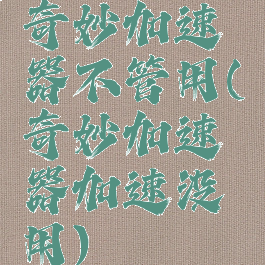 奇妙加速
器不管用(
奇妙加速
器加速没
用)